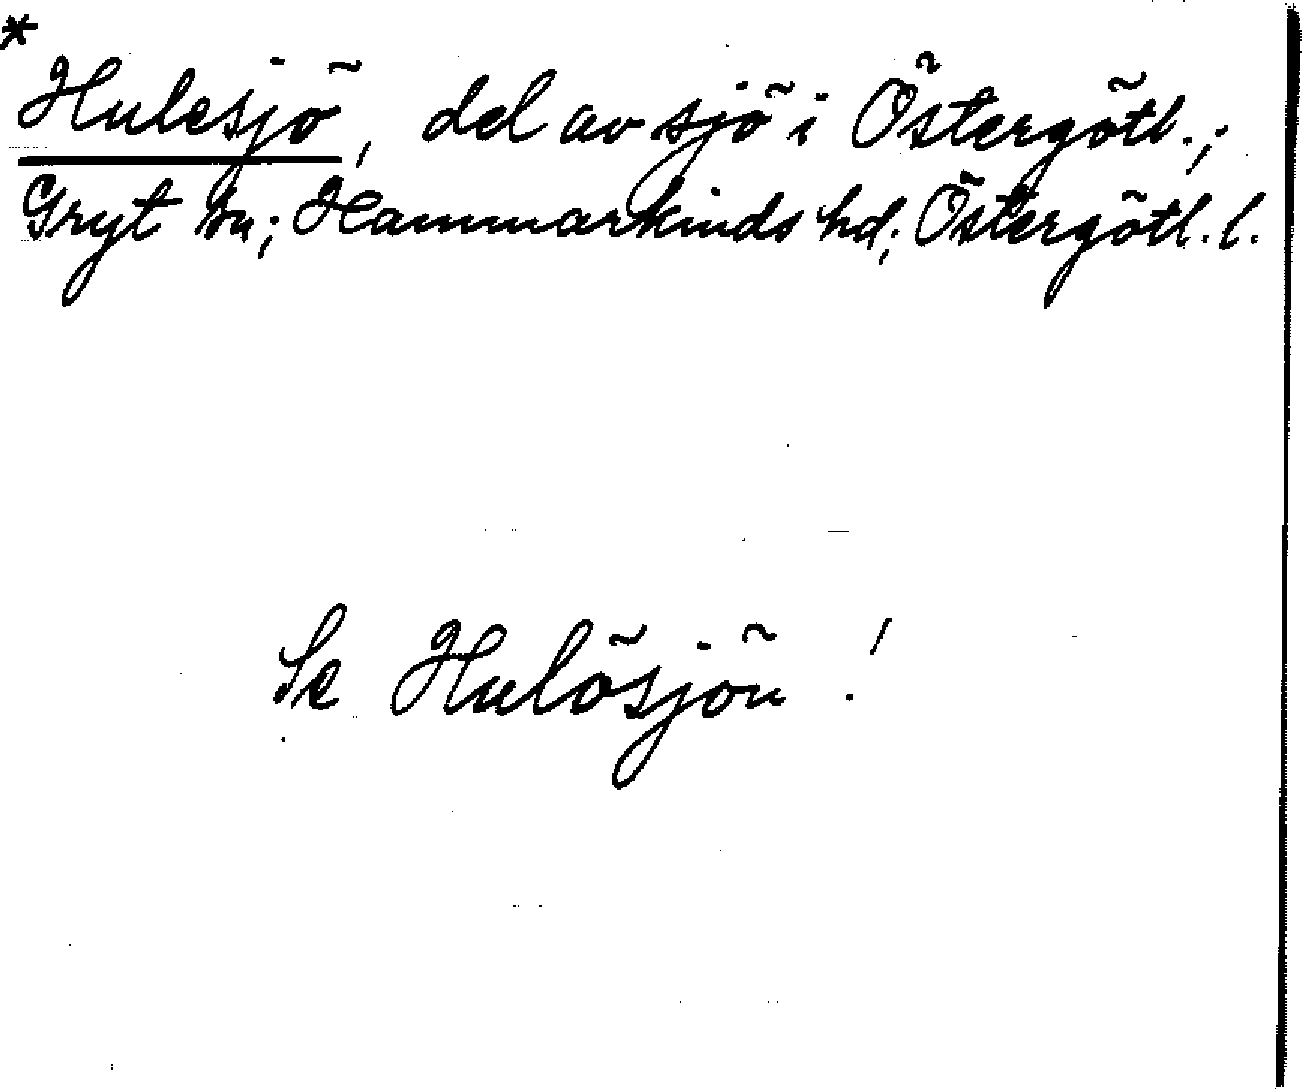 *
Hulesjö, del av sjö i Östergötl.;
Gryt sn; Hammarkinds hd; Östergötl. l.
Se Hulösjön !